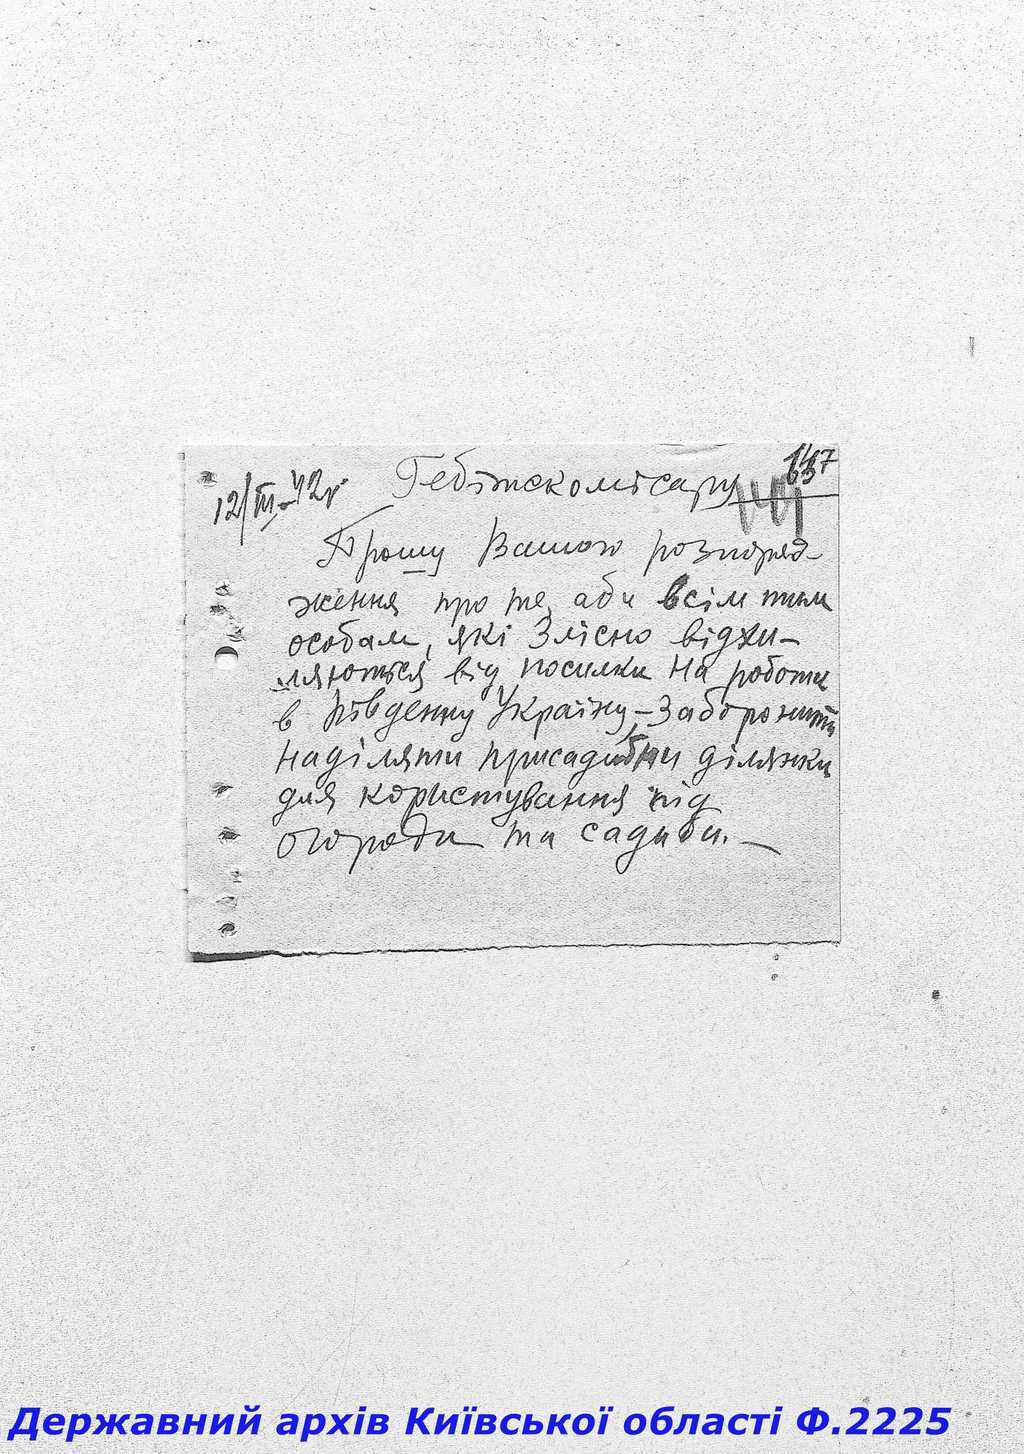 12/III-42р. Гебітскомісару 147
141
Прошу Вашого розпоряд-
ження про те, аби всім тим
особам, які Злісно відхи-
ляються від посилки на роботи
в Південну Україну, - Заборонити
наділяти присадибни ділянки
для користування під
огороди та садиби. -
Державний архів Київської області Ф.2225